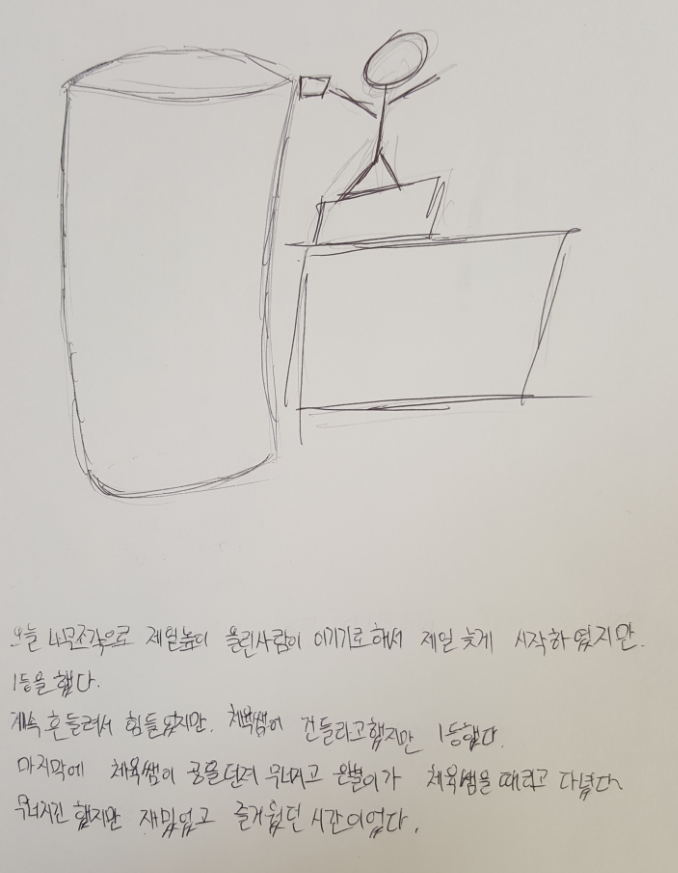 오늘 나무조각으로 제일높이 올린사람이 이기기로해서 제일 늦게 시작하였지만.
1등을 했다.
계속 흔들려서 힘들었지만. 체육쌤이 건들라고했지만 1등했다.
마지막에 체육쌤이 공을던져 무너지고 은별이가 체육쌤을 때리고 다녔다
무너지긴 했지만 재밌었고 즐거웠던 시간이었다.